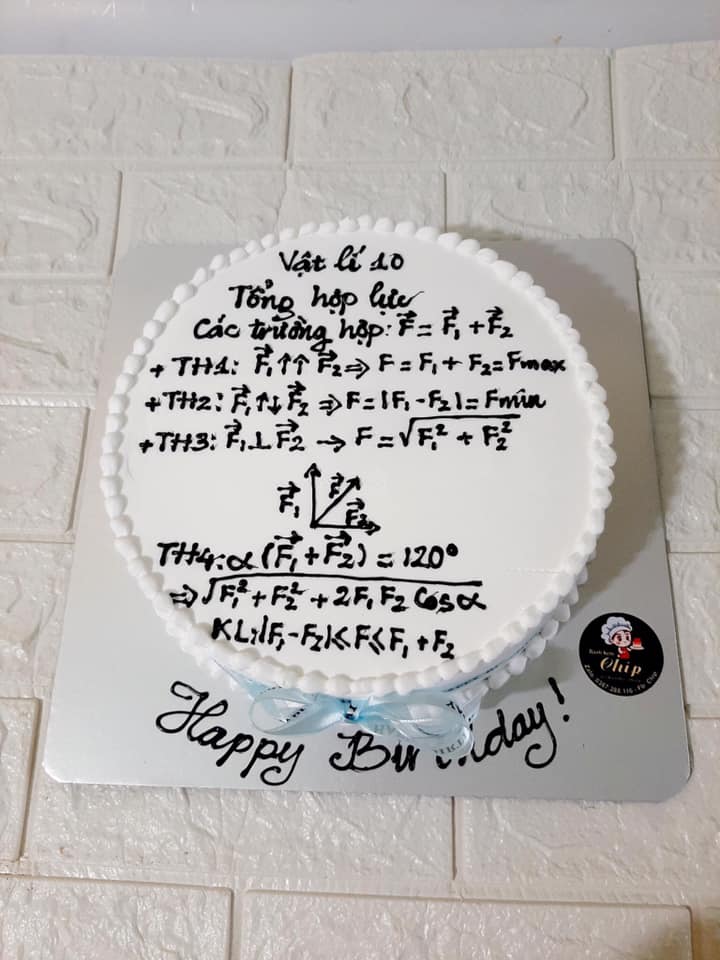 Vật lí 10
Tổng hợp lực
Các trường hợp: F⃗ = F⃗₁ + F⃗₂
+ TH1: F⃗₁ ↑↑ F⃗₂ ⇒ F = F₁ + F₂ = Fmax
+ TH2: F⃗₁ ↑↓ F⃗₂ ⇒ F = |F₁ - F₂| = Fmin
+ TH3: F⃗₁ ⊥ F⃗₂ → F = √(F₁² + F₂²)
F⃗₁ F⃗ F⃗₂
TH4: α (F⃗₁ + F⃗₂) = 120°
⇒ √(F₁² + F₂² + 2F₁F₂ Cosα)
KL: |F₁ - F₂| ≤ F ≤ F₁ + F₂
Chip
Happy Birthday!